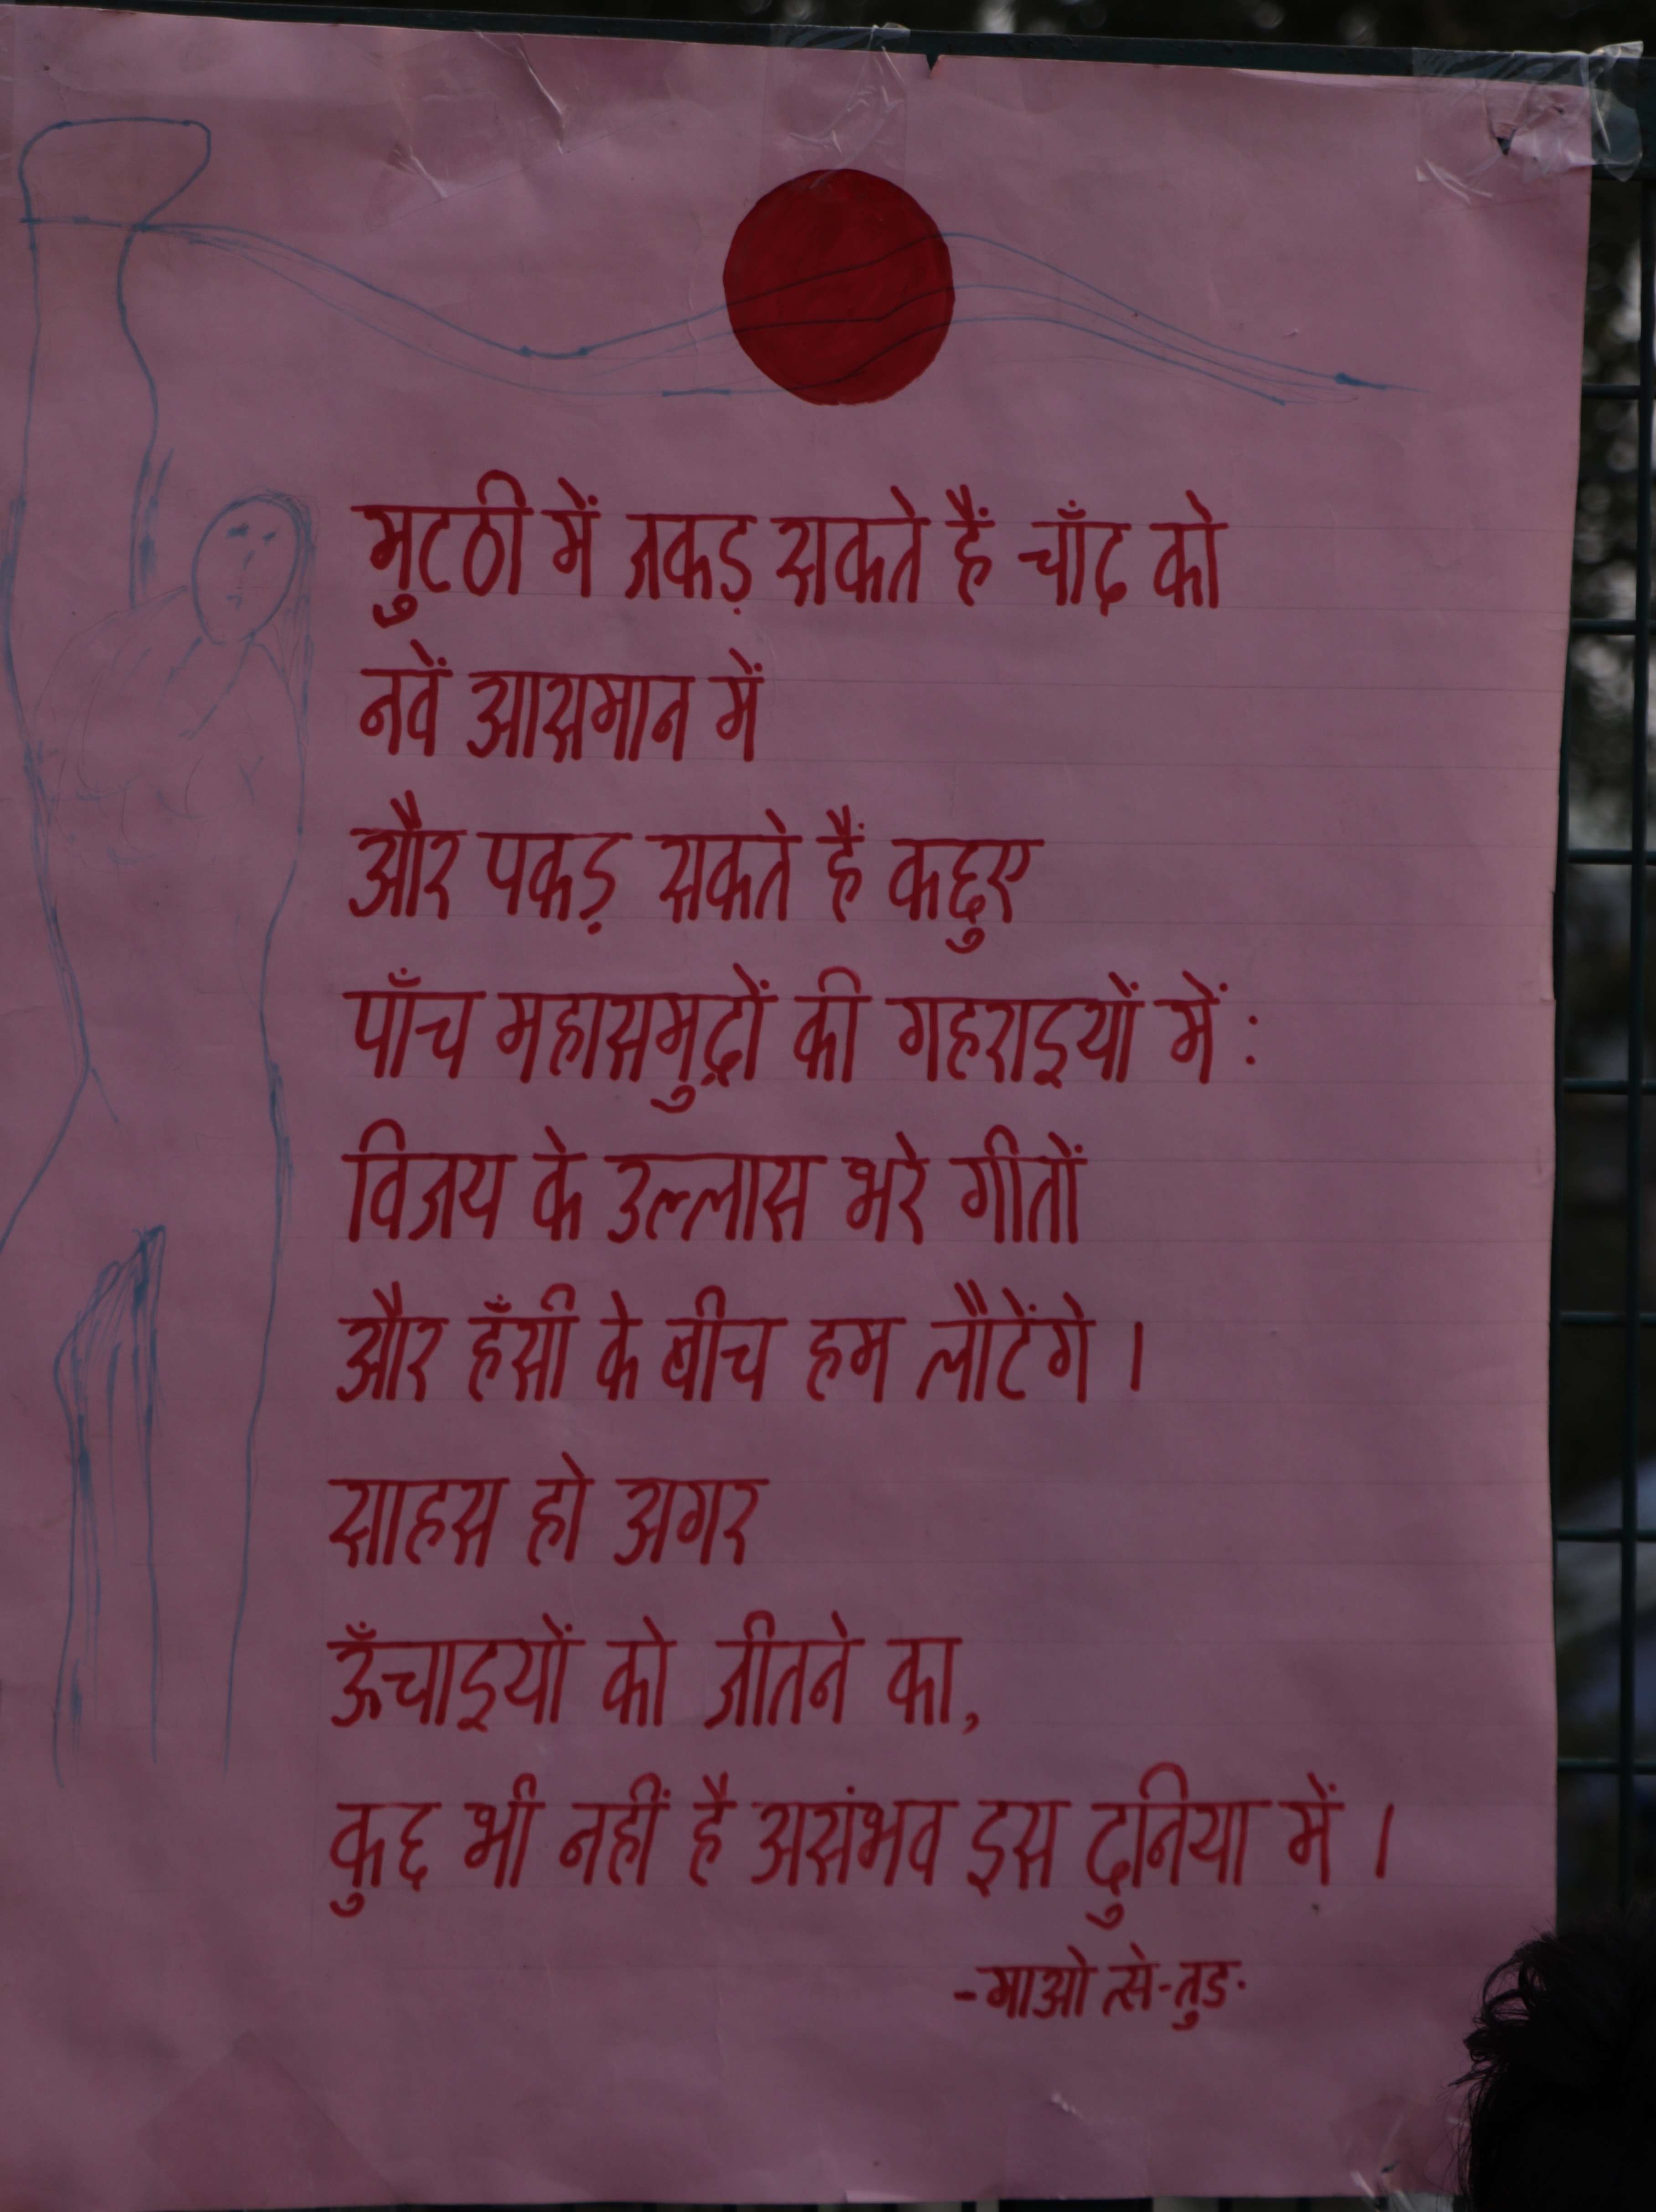 मुटठी में जकड़ सकते हैं चाँद को
नवें आसमान में
और पकड़ सकते हैं कछुए
पाँच महासमुद्रों की गहराइयों में :
विजय के उल्लास भरे गीतों
और हँसी के बीच हम लौटेंगे ।
साहस हो अगर
ऊँचाइयों को जीतने का,
कुछ भी नहीं है असंभव इस दुनिया में ।
-माओ त्से-तुङ